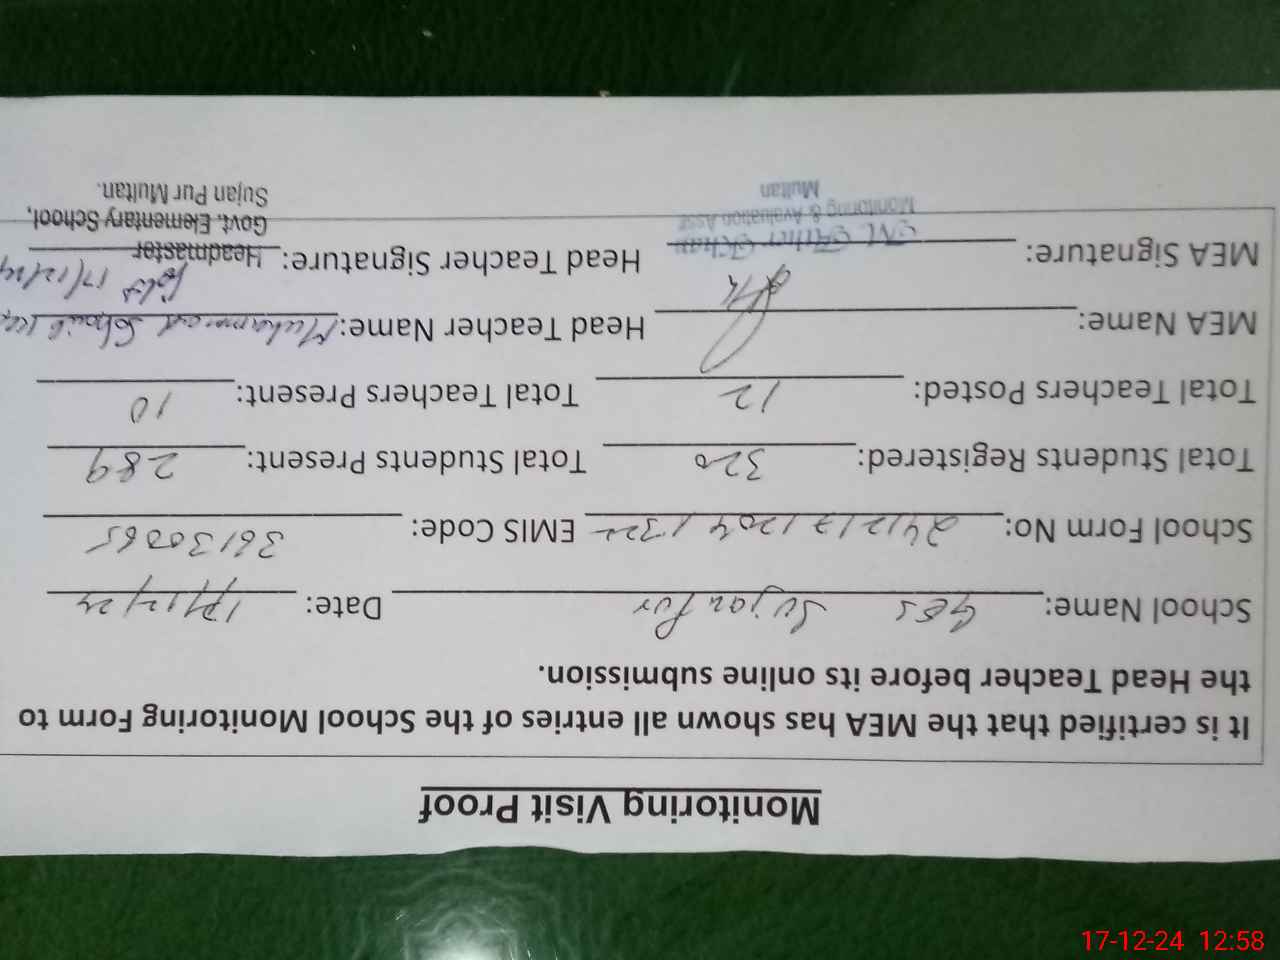 Monitoring Visit Proof
It is certified that the MEA has shown all entries of the School Monitoring Form to
the Head Teacher before its online submission.
School Name: GES Sujan Pur Date: 17/12/24
School Form No: 241217120411322 EMIS Code: 36130065
Total Students Registered: 320 Total Students Present: 289
Total Teachers Posted: 12 Total Teachers Present: 10
MEA Name: Head Teacher Name: Muhammad Shoaib
MEA Signature: Head Teacher Signature: 17/12/24
M. Ather Khan
Monitoring & Avaluation Asst
Multan
Headmaster
Govt. Elementary School,
Sujan Pur Multan.
17-12-24 12:58